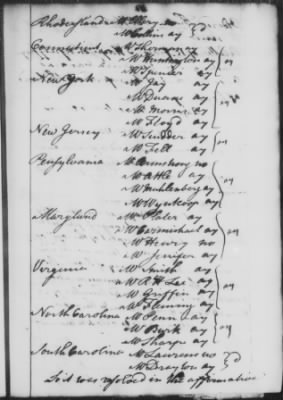 Rhode island Mr Ellery no } d
Mr Collins ay
Connecticut Mr Sherman ay
Mr Huntington ay } ay
Mr Spencer ay
New York Mr Jay ay
Mr Duane ay } ay
Mr Morris ay
Mr Floyd ay
New Jersey Mr Scudder ay } ay
Mr Fell ay
Pensylvania Mr Armstrong no
Mr Atlee ay } ay
Mr Muhlenberg ay
Mr Wynkoop ay
Maryland Mr Plater ay
Mr Carmichael ay } ay
Mr Henry no
Mr Jenifer ay
Virginia Mr Smith ay
Mr R H Lee ay } ay
Mr Griffin ay
Mr Fleming ay
North Carolina Mr Penn ay
Mr Burk ay } ay
Mr Sharpe ay
South Carolina Mr Laurens no } d
Mr Drayton ay
So it was resolved in the affirmative